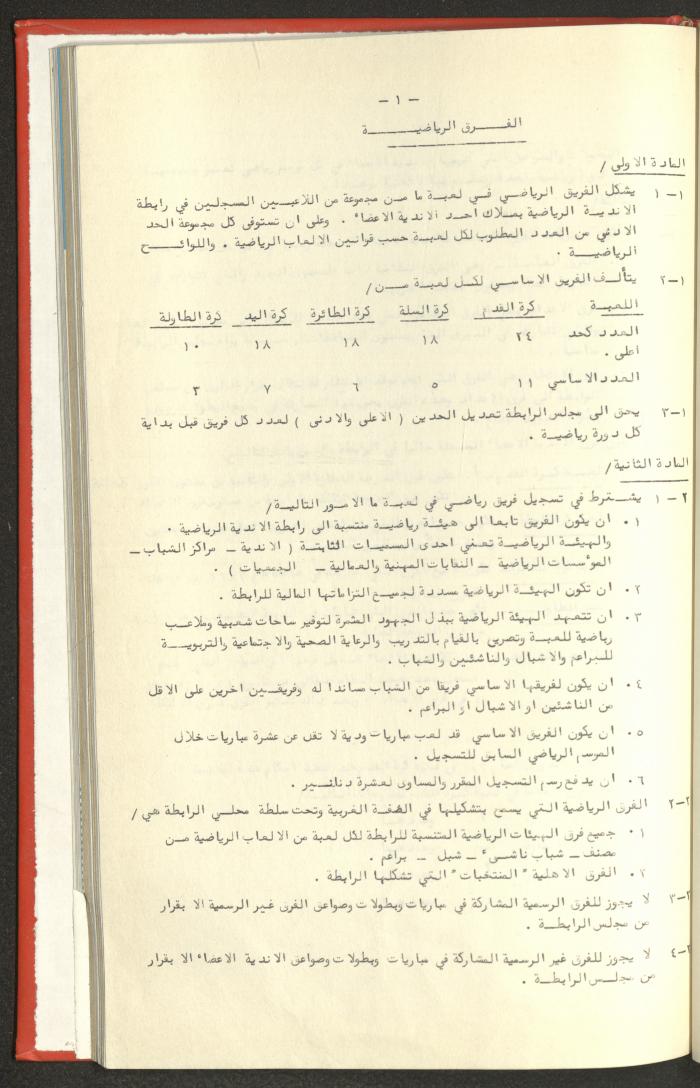 - ١ -
الفرق الرياضية
المادة الاولى /
١-١ يشكل الفريق الرياضي في لعبة ما من مجموعة من اللاعبين المسجلين في رابطة
الاندية الرياضية بملاك احد الاندية الاعضاء . وعلى ان تستوفى كل مجموعة الحد
الادنى من العدد المطلوب لكل لعبة حسب قوانين الالعاب الرياضية . واللوائح
الرياضية .
١-٢ يتألف الفريق الاساسي لكل لعبة من /
اللعبة كرة القدم كرة السلة كرة الطائرة كرة اليد كرة الطاولة
العدد كحد ٢٤ ١٨ ١٨ ١٨ ١٠
اعلى .
العدد الاساسي ١١ ٥ ٦ ٧ ٣
١-٣ يحق الى مجلس الرابطة تعديل الحدين ( الاعلى والادنى ) لعدد كل فريق قبل بداية
كل دورة رياضية .
المادة الثانية /
٢-١ يشترط في تسجيل فريق رياضي في لعبة ما الامور التالية /
١. ان يكون الفريق تابعا الى هيئة رياضية منتسبة الى رابطة الاندية الرياضية .
والهيئة الرياضية تعني احدى المسميات الثابتة ( الاندية - مراكز الشباب -
المؤسسات الرياضية - النقابات المهنية والعمالية - الجمعيات ) .
٢. ان تكون الهيئة الرياضية مسددة لجميع التزاماتها المالية للرابطة .
٣. ان تتعهد الهيئة الرياضية ببذل الجهود المثمرة لتوفير ساحات شعبية وملاعب
رياضية للعبة وتصريح بالقيام بالتدريب والرعاية الصحية والاجتماعية والتربوية
للبراعم والاشبال والناشئين والشباب .
٤. ان يكون لفريقها الاساسي فريقا من الشباب مساندا له وفريقين اخرين على الاقل
من الناشئين او الاشبال او البراعم .
٥. ان يكون الفريق الاساسي قد لعب مباريات ودية لا تقل عن عشرة مباريات خلال
الموسم الرياضي السابق للتسجيل .
٦. ان يدفع رسم التسجيل المقرر والمساوى لعشرة دنانير .
٢-٢ الفرق الرياضية التي يسمح بتشكيلها في الضفة الغربية وتحت سلطة مجلس الرابطة هي /
١. جميع فرق الهيئات الرياضية المنتسبة للرابطة لكل لعبة من الالعاب الرياضية من
مصنف - شباب ناشىء - شبل - براعم .
٢. الفرق الاهلية "المنتخبات" التي تشكلها الرابطة .
٢-٣ لا يجوز للفرق الرسمية المشاركة في مباريات وبطولات وصواعق الفرق غير الرسمية الا بقرار
من مجلس الرابطة .
٢-٤ لا يجوز للفرق غير الرسمية المشاركة في مباريات وبطولات وصواعق الاندية الاعضاء الا بقرار
من مجلس الرابطة .